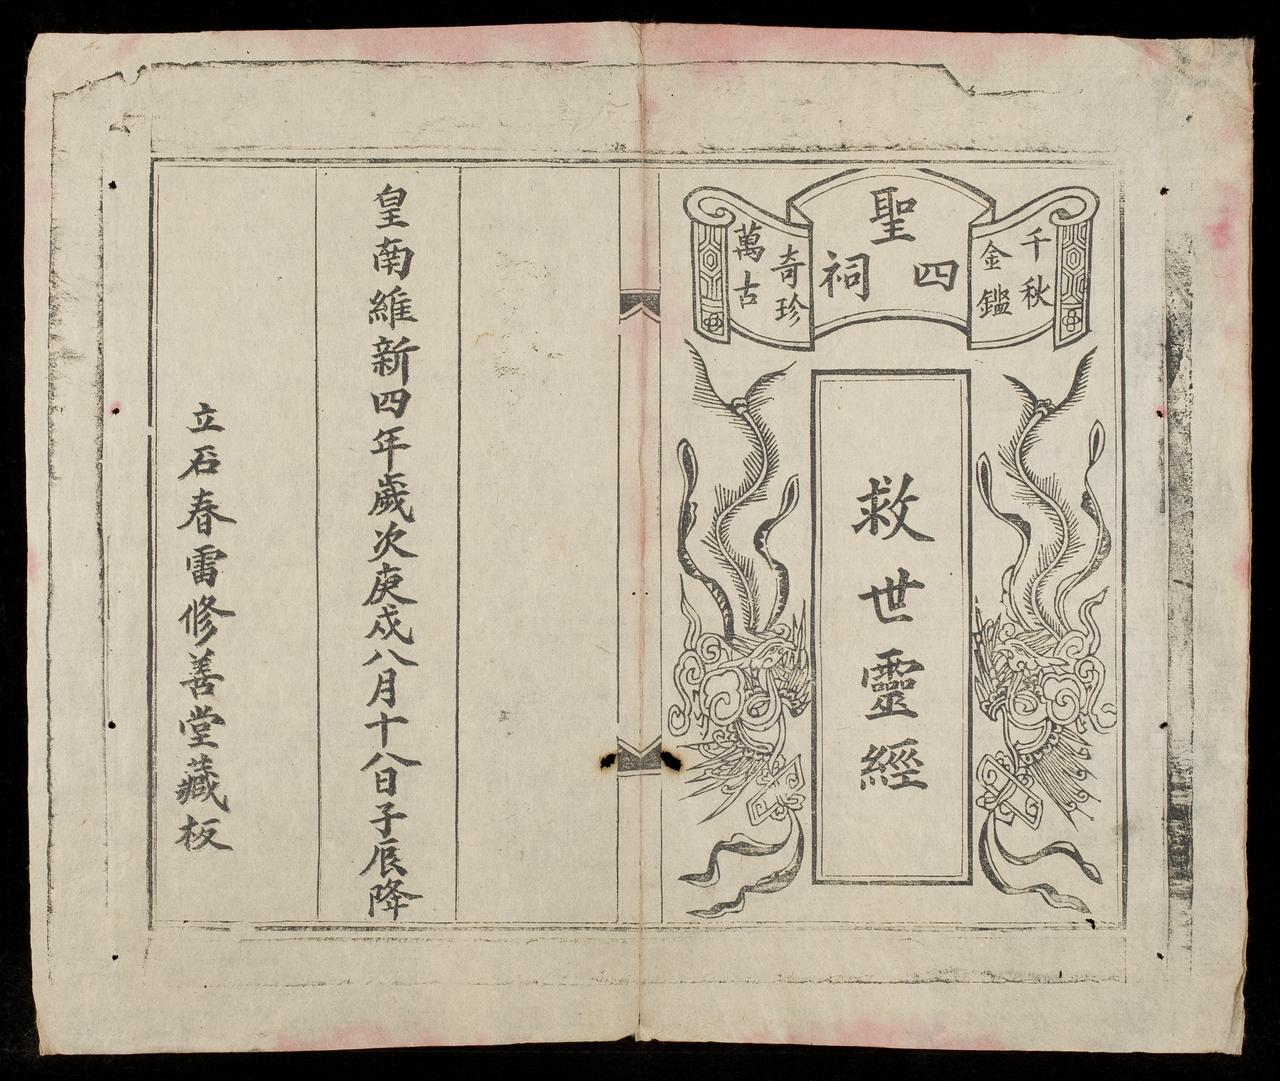 千秋
金鑑
四聖祠
奇珍
萬古
救世靈經
皇南維新四年歲次庚戌八月十八日子辰降
立石春雷修善堂藏板